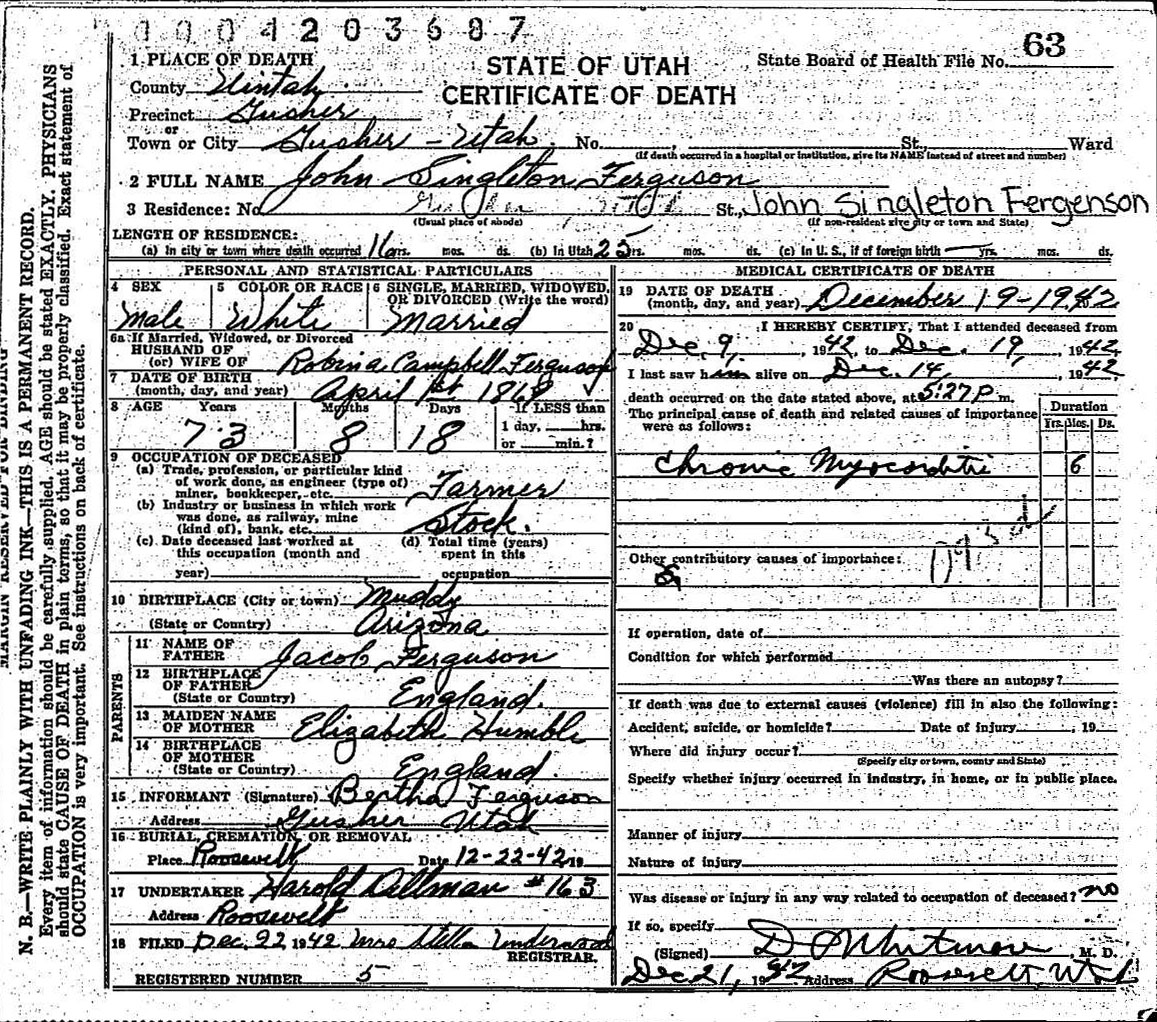 0004203687
63
STATE OF UTAH
CERTIFICATE OF DEATH
State Board of Health File No.
1 PLACE OF DEATH
County Uintah
Precinct Gusher
or
Town or City Gusher - Utah. No. , St., Ward
(If death occurred in a hospital or institution, give its NAME instead of street and number)
2 FULL NAME John Singleton Ferguson
3 Residence: No. St., John Singleton Fergenson
(Usual place of abode) (If non-resident give city or town and State)
LENGTH OF RESIDENCE:
(a) In city or town where death occurred 16 yrs. mos. ds. (b) In Utah 25 yrs. mos. ds. (c) In U. S., if of foreign birth yrs. mos. ds.
PERSONAL AND STATISTICAL PARTICULARS
4 SEX 5 COLOR OR RACE 6 SINGLE, MARRIED, WIDOWED, OR DIVORCED (Write the word)
Male White Married
6a If Married, Widowed, or Divorced
HUSBAND OF
(or) WIFE OF Robina Campbell Ferguson
7 DATE OF BIRTH
(month, day, and year) April 1st 1869
8 AGE Years Months Days If LESS than
73 8 18 1 day, hrs.
or min.?
9 OCCUPATION OF DECEASED
(a) Trade, profession, or particular kind
of work done, as engineer (type of) Farmer
miner, bookkeeper, etc.
(b) Industry or business in which work
was done, as railway, mine Stock.
(kind of), bank, etc.
(c) Date deceased last worked at (d) Total time (years)
this occupation (month and spent in this
year) occupation
10 BIRTHPLACE (City or town) Muddy
(State or Country) Arizona
PARENTS
11 NAME OF
FATHER Jacob Ferguson
12 BIRTHPLACE
OF FATHER England.
(State or Country)
13 MAIDEN NAME
OF MOTHER Elizabeth Humble
14 BIRTHPLACE
OF MOTHER
(State or Country) England.
15 INFORMANT (Signature) Bertha Ferguson
Address Gusher Utah
16 BURIAL, CREMATION, OR REMOVAL
Place Roosevelt Date 12-22-42, 19
17 UNDERTAKER Harold Dillman #163
Address Roosevelt
18 FILED Dec. 22 1942 Mrs Stella Underwood
REGISTRAR.
REGISTERED NUMBER 5
MEDICAL CERTIFICATE OF DEATH
19 DATE OF DEATH
(month, day, and year) December 19-1942
20 I HEREBY CERTIFY, That I attended deceased from
Dec. 9, 1942, to Dec. 19, 1942.
I last saw him alive on Dec. 14, 1942
death occurred on the date stated above, at 5:27 P m.
The principal cause of death and related causes of importance
were as follows:
Duration
Yrs. Mos. Ds.
Chronic Myocarditis 6
Other contributory causes of importance:
If operation, date of
Condition for which performed
Was there an autopsy?
If death was due to external causes (violence) fill in also the following:
Accident, suicide, or homicide? Date of injury , 19
Where did injury occur?
(Specify city or town, county and State)
Specify whether injury occurred in industry, in home, or in public place.
Manner of injury
Nature of injury
Was disease or injury in any way related to occupation of deceased? no
If so, specify
(Signed) D O Whitmore M. D.
Dec 21, 1942 Address Roosevelt, Utah
MARGIN RESERVED FOR BINDING
N. B.—WRITE PLAINLY WITH UNFADING INK—THIS IS A PERMANENT RECORD.
Every item of information should be carefully supplied. AGE should be stated EXACTLY. PHYSICIANS
should state CAUSE OF DEATH in plain terms, so that it may be properly classified. Exact statement of
OCCUPATION is very important. See instructions on back of certificate.